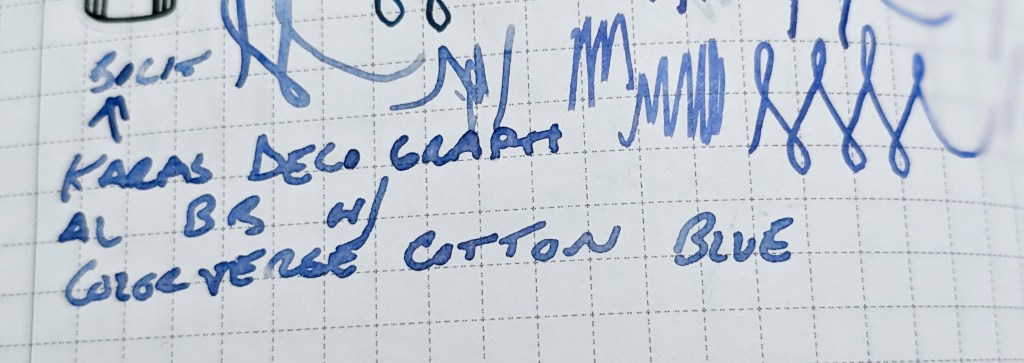 KARAS DECO GRAPH
AL BB W/
COLORVERSE COTTON BLUE